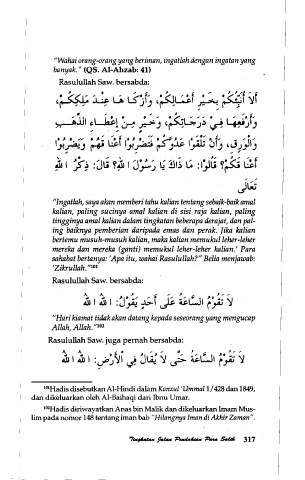 "Wahai orang-orang yang beriman, ingatlah dengan ingatan yang
banyak." (QS. Al-Ahzab: 41)
Rasulullah Saw. bersabda:
أَلاَ أُنَبِّئُكُمْ بِخَيْرِ أَعْمَالِكُمْ، وَأَزْكَاهَا عِنْدَ مَلِكِكُمْ،
وَأَرْفَعِهَا فِي دَرَجَاتِكُمْ، وَخَيْرٍ مِنْ إِعْطَاءِ الذَّهَبِ
وَالْوَرِقِ، وَأَنْ تَلْقَوْا عَدُوَّكُمْ فَتَضْرِبُوْا أَعْنَاقَهُمْ وَيَضْرِبُوْا
أَعْنَاقَكُمْ؟ قَالُوْا: مَا ذَاكَ يَا رَسُوْلَ اللهِ؟ قَالَ: ذِكْرُ اللهِ
تَعَالَى
"Ingatlah, saya akan memberi tahu kalian tentang sebaik-baik amal
kalian, paling sucinya amal kalian di sisi raja kalian, paling
tingginya amal kalian dalam tingkatan beberapa derajat, dan pal-
ing baiknya pemberian daripada emas dan perak. Jika kalian
bertemu musuh-musuh kalian, maka kalian memukul leher-leher
mereka dan mereka (ganti) memukul leher-leher kalian.' Para
sahabat bertanya: 'Apa itu, wahai Rasulullah?' Belia menjawab:
'Zikrullah.'"¹⁰¹
Rasulullah Saw. bersabda:
لاَ تَقُوْمُ السَّاعَةُ عَلَى أَحَدٍ يَقُوْلُ: اللهُ اللهُ
"Hari kiamat tidak akan datang kepada seseorang yang mengucap
Allah, Allah."¹⁰²
Rasulullah Saw. juga pernah bersabda:
لاَ تَقُوْمُ السَّاعَةُ حَتَّى لاَ يُقَالُ فِي الْأَرْضِ: اللهُ اللهُ
¹⁰¹Hadis disebutkan Al-Hindi dalam Kanzul 'Ummal 1/428 dan 1849,
dan dikeluarkan oleh Al-Baihaqi dari Ibnu Umar.
¹⁰²Hadis diriwayatkan Anas bin Malik dan dikeluarkan Imam Mus-
lim pada nomor 148 tentang iman bab "Hilangnya Iman di Akhir Zaman".
Tingkatan Jalan Pendakian Para Salik 317